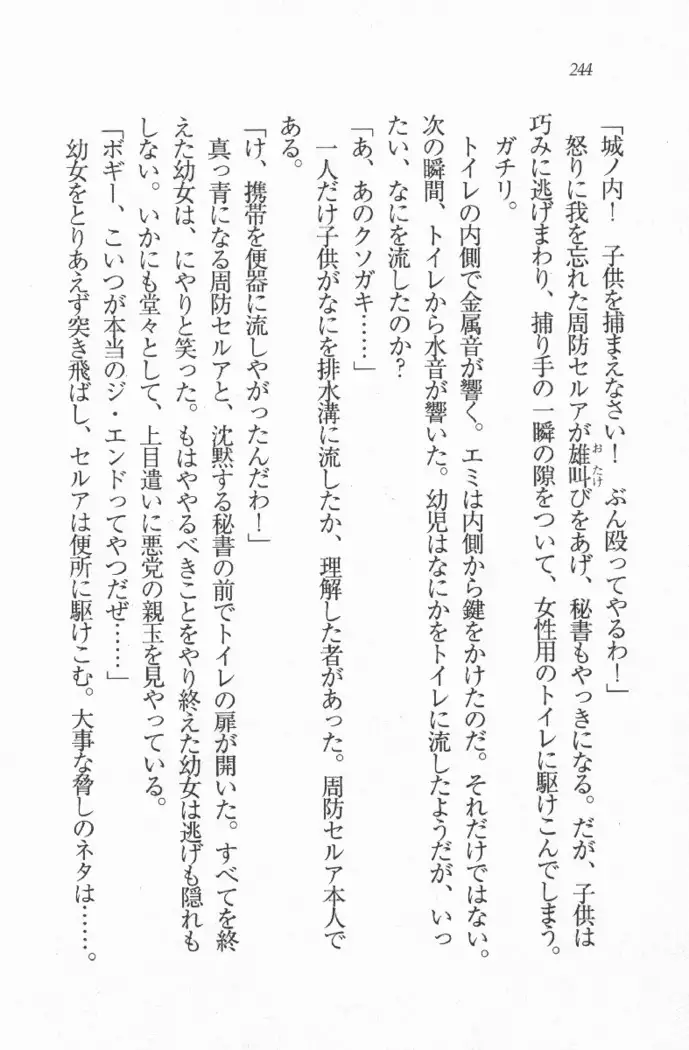 244
「城ノ内！　子供を捕まえなさい！　ぶん殴ってやるわ！」
　怒りに我を忘れた周防セルアが雄叫びをあげ、秘書もやっきになる。だが、子供は
巧みに逃げまわり、捕り手の一瞬の隙をついて、女性用のトイレに駆けこんでしまう。
　ガチリ。
　トイレの内側で金属音が響く。エミは内側から鍵をかけたのだ。それだけではない。
次の瞬間、トイレから水音が響いた。幼児はなにかをトイレに流したようだが、いっ
たい、なにを流したのか？
「あ、あのクソガキ……」
　一人だけ子供がなにを排水溝に流したか、理解した者があった。周防セルア本人で
ある。
「け、携帯を便器に流しやがったんだわ！」
　真っ青になる周防セルアと、沈黙する秘書の前でトイレの扉が開いた。すべてを終
えた幼女は、にやりと笑った。もはややるべきことをやり終えた幼女は逃げも隠れも
しない。いかにも堂々として、上目遣いに悪党の親玉を見やっている。
「ボギー、こいつが本当のジ・エンドってやつだぜ……」
　幼女をとりあえず突き飛ばし、セルアは便所に駆けこむ。大事な脅しのネタは……。